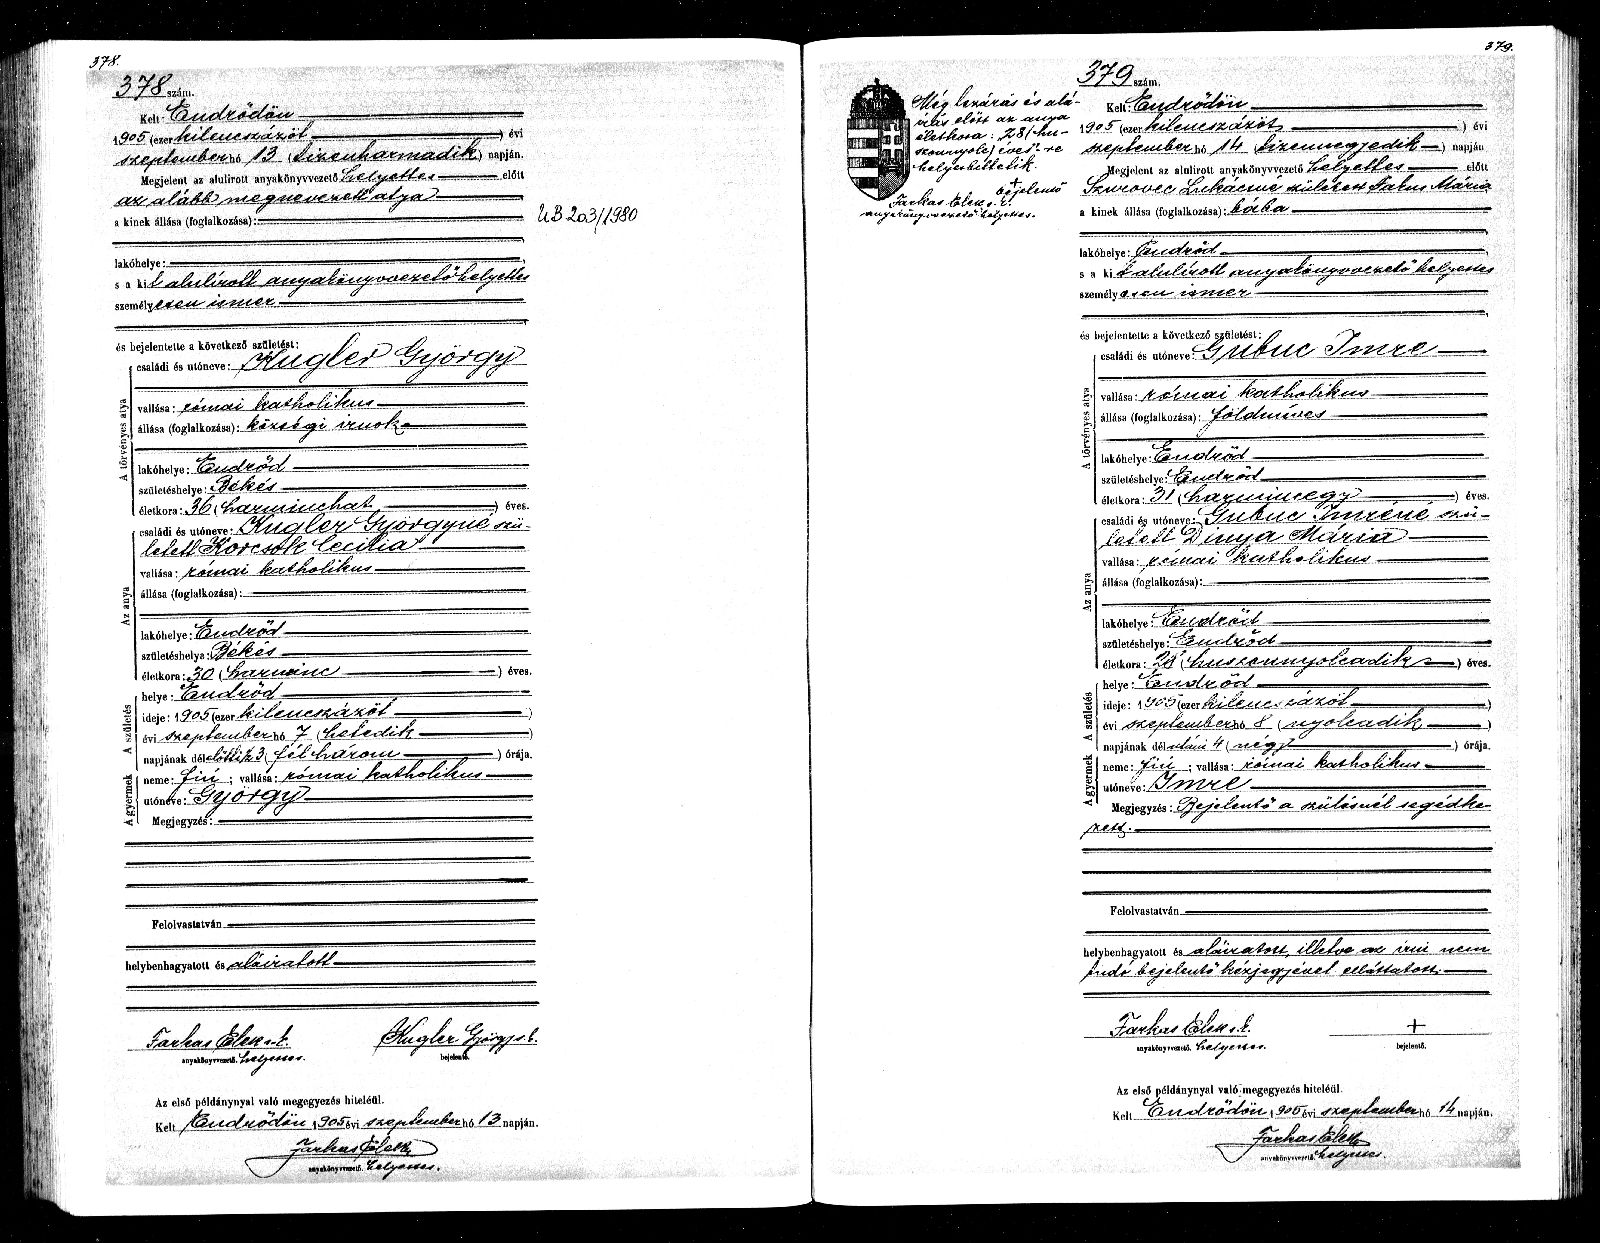 378.
378 szám.
Kelt: Endrődön
1905 (ezer kilencszázöt) évi
szeptember hó 13 (tizenharmadik) napján.
Megjelent az alulirott anyakönyvvezető helyettes előtt
az alább megnevezett atya
a kinek állása (foglalkozása):
lakóhelye:
s a kit alulírott anyakönyvvezető helyettes
személyesen ismer
és bejelentette a következő születést:
A törvényes atya
családi és utóneve: Kugler György
vallása: római katholikus
állása (foglalkozása): községi irnok
lakóhelye: Endrőd
születéshelye: Békés
életkora: 36 (harminchat) éves.
Az anya
családi és utóneve: Kugler Györgyné szü-
letett Korcsok Cecilia
vallása: római katholikus
állása (foglalkozása):
lakóhelye: Endrőd
születéshelye: Békés
életkora: 30 (harminc) éves.
A születés
helye: Endrőd
ideje: 1905 (ezer kilencszázöt)
évi szeptember hó 7 (hetedik)
napjának délelőtti ½3 (fél három) órája.
A gyermek
neme: fiú; vallása: római katholikus
utóneve: György
Megjegyzés:
Felolvastatván
helybenhagyatott és aláiratott
Farkas Elek s.k.
anyakönyvvezető. helyettes.
Kugler György s.k.
bejelentő.
Az első példánynyal való megegyezés hiteléül.
Kelt Endrődön 1905 évi szeptember hó 13 napján.
Farkas Elek
anyakönyvvezető. helyettes.
ÜB 203/1980
379.
Még lezárás és alá-
irás előtt az anya
életkora: „28 (hu-
szonnyolc) éves"-re
helyesbittetik.
+
bejelentő
Farkas Elek s.k.
anyakönyvvezető helyettes.
379 szám.
Kelt: Endrődön
1905 (ezer kilencszázöt) évi
szeptember hó 14 (tizennegyedik) napján
Megjelent az alulirott anyakönyvvezető helyettes előtt
Szurovec Lukácsné született Mária
a kinek állása (foglalkozása): bába
lakóhelye: Endrőd
s a kit alulírott anyakönyvvezető helyettes
személyesen ismer
és bejelentette a következő születést:
A törvényes atya
családi és utóneve: Gubuc Imre
vallása: római katholikus
állása (foglalkozása): földmíves
lakóhelye: Endrőd
születéshelye: Endrőd
életkora: 31 (harmincegy) éves.
Az anya
családi és utóneve: Gubuc Imréné szü-
letett Dinya Mária
vallása: római katholikus
állása (foglalkozása):
lakóhelye: Endrőd
születéshelye: Endrőd
életkora: 28 (huszonnyolcadik) éves.
A születés
helye: Endrőd
ideje: 1905 (ezer kilencszázöt)
évi szeptember hó 8 (nyolcadik)
napjának délutáni 4 (négy) órája.
A gyermek
neme: fiú; vallása: római katholikus
utóneve: Imre
Megjegyzés: Bejelentő a szülésnél segédke-
zett.
Felolvastatván
helybenhagyatott és aláiratott, illetve az irni nem
tudó bejelentő kézjegyével elláttatott.
Farkas Elek s.k.
anyakönyvvezető. helyettes.
+
bejelentő.
Az első példánynyal való megegyezés hiteléül.
Kelt Endrődön 1905 évi szeptember hó 14 napján.
Farkas Elek
anyakönyvvezető. helyettes.